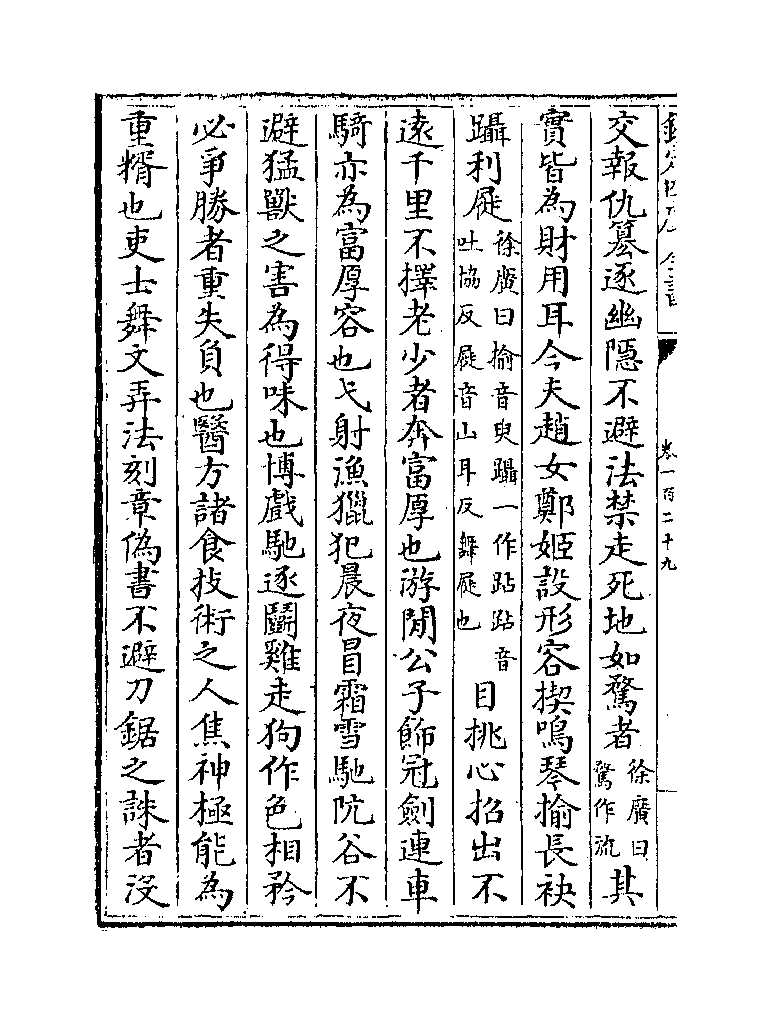 欽定四庫全書
卷一百二十九
交報仇篡逐幽隱不避法禁走死地如騖者徐廣曰騖作流其
實皆為財用耳今夫趙女鄭姬設形容揳鳴琴揄長袂
躡利屣徐廣曰揄音臾躡一作跕跕音吐協反屣音山耳反舞屣也目挑心招出不
遠千里不擇老少者奔富厚也游閒公子飾冠劍連車
騎亦為富厚容也弋射漁獵犯晨夜冒霜雪馳阬谷不
避猛獸之害為得味也博戲馳逐鬭雞走狗作色相矜
必爭勝者重失負也醫方諸食技術之人焦神極能為
重糈也吏士舞文弄法刻章偽書不避刀鋸之誅者沒